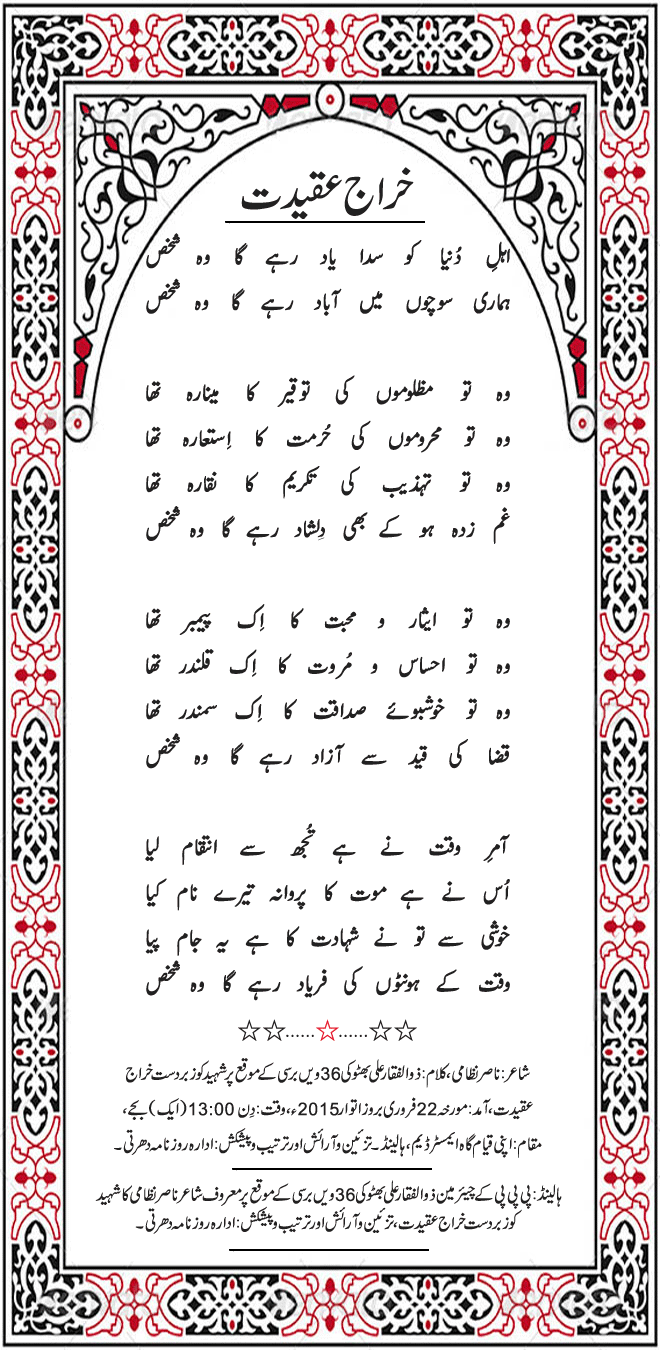 خراج عقیدت
اہلِ دُنیا کو سدا یاد رہے گا وہ شخص
ہماری سوچوں میں آباد رہے گا وہ شخص
وہ تو مظلوموں کی توقیر کا مینارہ تھا
وہ تو محروموں کی حُرمت کا اِستعارہ تھا
وہ تو تہذیب کی تکریم کا نقارہ تھا
غم زدہ ہو کے بھی دِلشاد رہے گا وہ شخص
وہ تو ایثار و محبت کا اِک پیمبر تھا
وہ تو احساس و مُروت کا اِک قلندر تھا
وہ تو خوشبوئے صداقت کا اِک سمندر تھا
قضا کی قید سے آزاد رہے گا وہ شخص
آمرِ وقت نے ہے تُجھ سے انتقام لیا
اُس نے ہے موت کا پروانہ تیرے نام کیا
خوشی سے تو نے شہادت کا ہے یہ جام پیا
وقت کے ہونٹوں کی فریاد رہے گا وہ شخص
☆☆......☆......☆☆
شاعر: ناصر نظامی، کلام: ذوالفقار علی بھٹو کی 36 ویں برسی کے موقع پر شہید کو زبردست خراج
عقیدت، آمد: مورخہ 22 فروری بروز اتوار 2015ء، وقت: دِن 13:00 (ایک) بجے،
مقام: اپنی قیام گاہ ایمسٹرڈیم، ہالینڈ۔ تزئین و آرائش اور ترتیب و پیشکش: ادارہ روزنامہ دھرتی۔
ہالینڈ: پی پی پی کے چیئرمین ذوالفقار علی بھٹو کی 36 ویں برسی کے موقع پر معروف شاعر ناصر نظامی کا شہید
کو زبردست خراج عقیدت، تزئین و آرائش اور ترتیب و پیشکش: ادارہ روزنامہ دھرتی۔